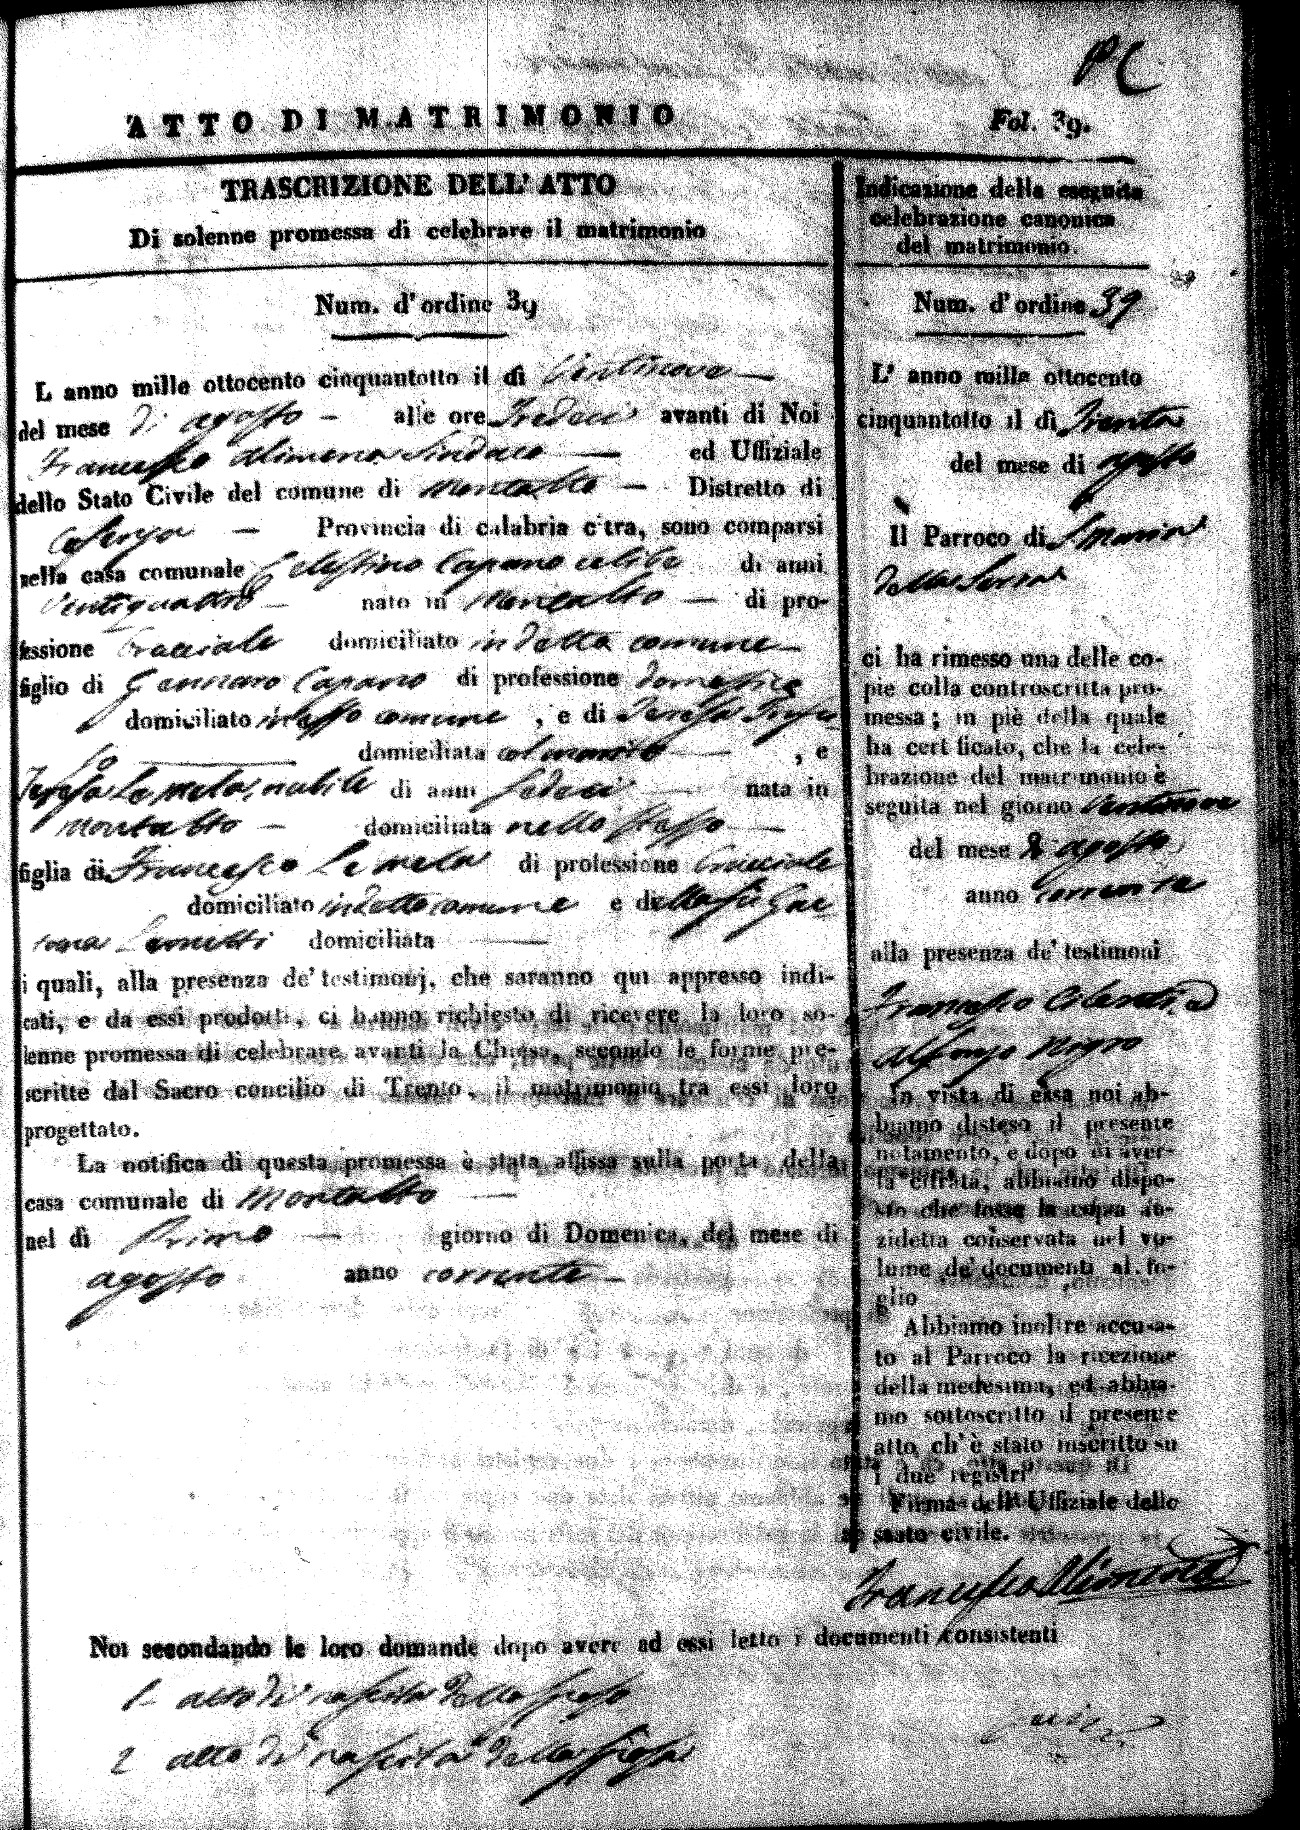 ATTO DI MATRIMONIO
Fol. 39.
TRASCRIZIONE DELL' ATTO
Di solenne promessa di celebrare il matrimonio
Num. d' ordine 39
L anno mille ottocento cinquantotto il dì Ventinove —
del mese di agosto — alle ore Tredeci avanti di Noi
Francesco Alimena Sindaco — ed Uffiziale
dello Stato Civile del comune di Montalto — Distretto di
Cosenza — Provincia di calabria citra, sono comparsi
nella casa comunale Celestino Capano celibe di anni
Ventiquattro — nato in Montalto — di pro-
fessione Bracciale domiciliato in detto comune —
figlio di Gennaro Capano di professione domestico
domiciliato in esso comune , e di Teresa
domiciliata col marito — , e
Teresa La Meta, nubile di anni Sedeci — nata in
Montalto — domiciliata nello stesso —
figlia di Francesco La Meta di professione Bracciale
domiciliato in detto comune e della fu Gae-
tana domiciliata —
i quali, alla presenza de' testimonj, che saranno qui appresso indi-
cati, e da essi prodotti, ci hanno richiesto di ricevere la loro so-
lenne promessa di celebrare avanti la Chiesa, secondo le forme pre-
scritte dal Sacro concilio di Trento, il matrimonio tra essi loro
progettato.
La notifica di questa promessa è stata affissa sulla porta della
casa comunale di Montalto —
nel dì Primo — giorno di Domenica, del mese di
agosto anno corrente —
Indicazione della eseguita
celebrazione canonica
del matrimonio.
Num. d' ordine 39
L' anno mille ottocento
cinquantotto il dì Trenta
del mese di agosto
Il Parroco di S. Maria
della Serra
ci ha rimesso una delle co-
pie colla controscritta pro-
messa; in piè della quale
ha certificato, che la cele-
brazione del matrimonio è
seguita nel giorno Ventinove
del mese di agosto
anno Corrente
alla presenza de' testimoni
Francesco
Alfonzo Nigro
In vista di essa noi ab-
biamo disteso il presente
notamento, e dopo di aver-
la cifrata, abbiamo dispo-
sto che fosse la copia an-
zidetta conservata nel vo-
lume de' documenti al fo-
glio
Abbiamo inoltre accusa-
to al Parroco la ricezione
della medesima, ed abbia-
mo sottoscritto il presente
atto ch' è stato inscritto su
i due registri
Firma dell' Uffiziale dello
stato civile.
Francesco Alimena
Noi secondando le loro domande dopo avere ad essi letto i documenti consistenti
1- atto di nascita dello sposo
2 atto di nascita della sposa